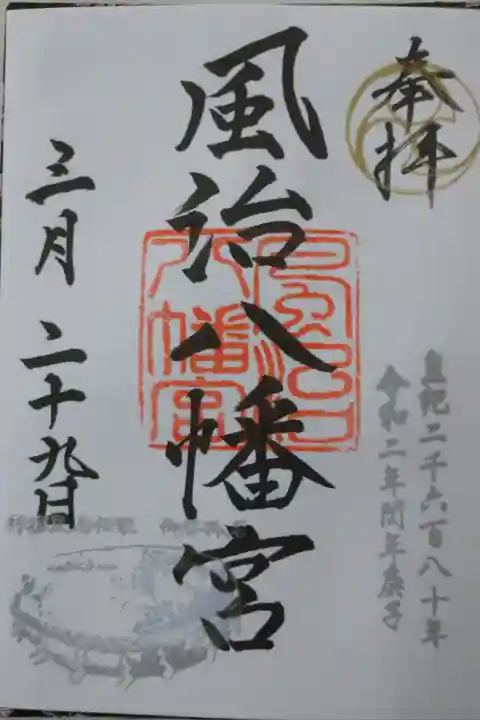 奉拝
皇紀二千六百八十年
令和二年閏年庚子
風治八幡宮
風治八幡宮
三月二十九日